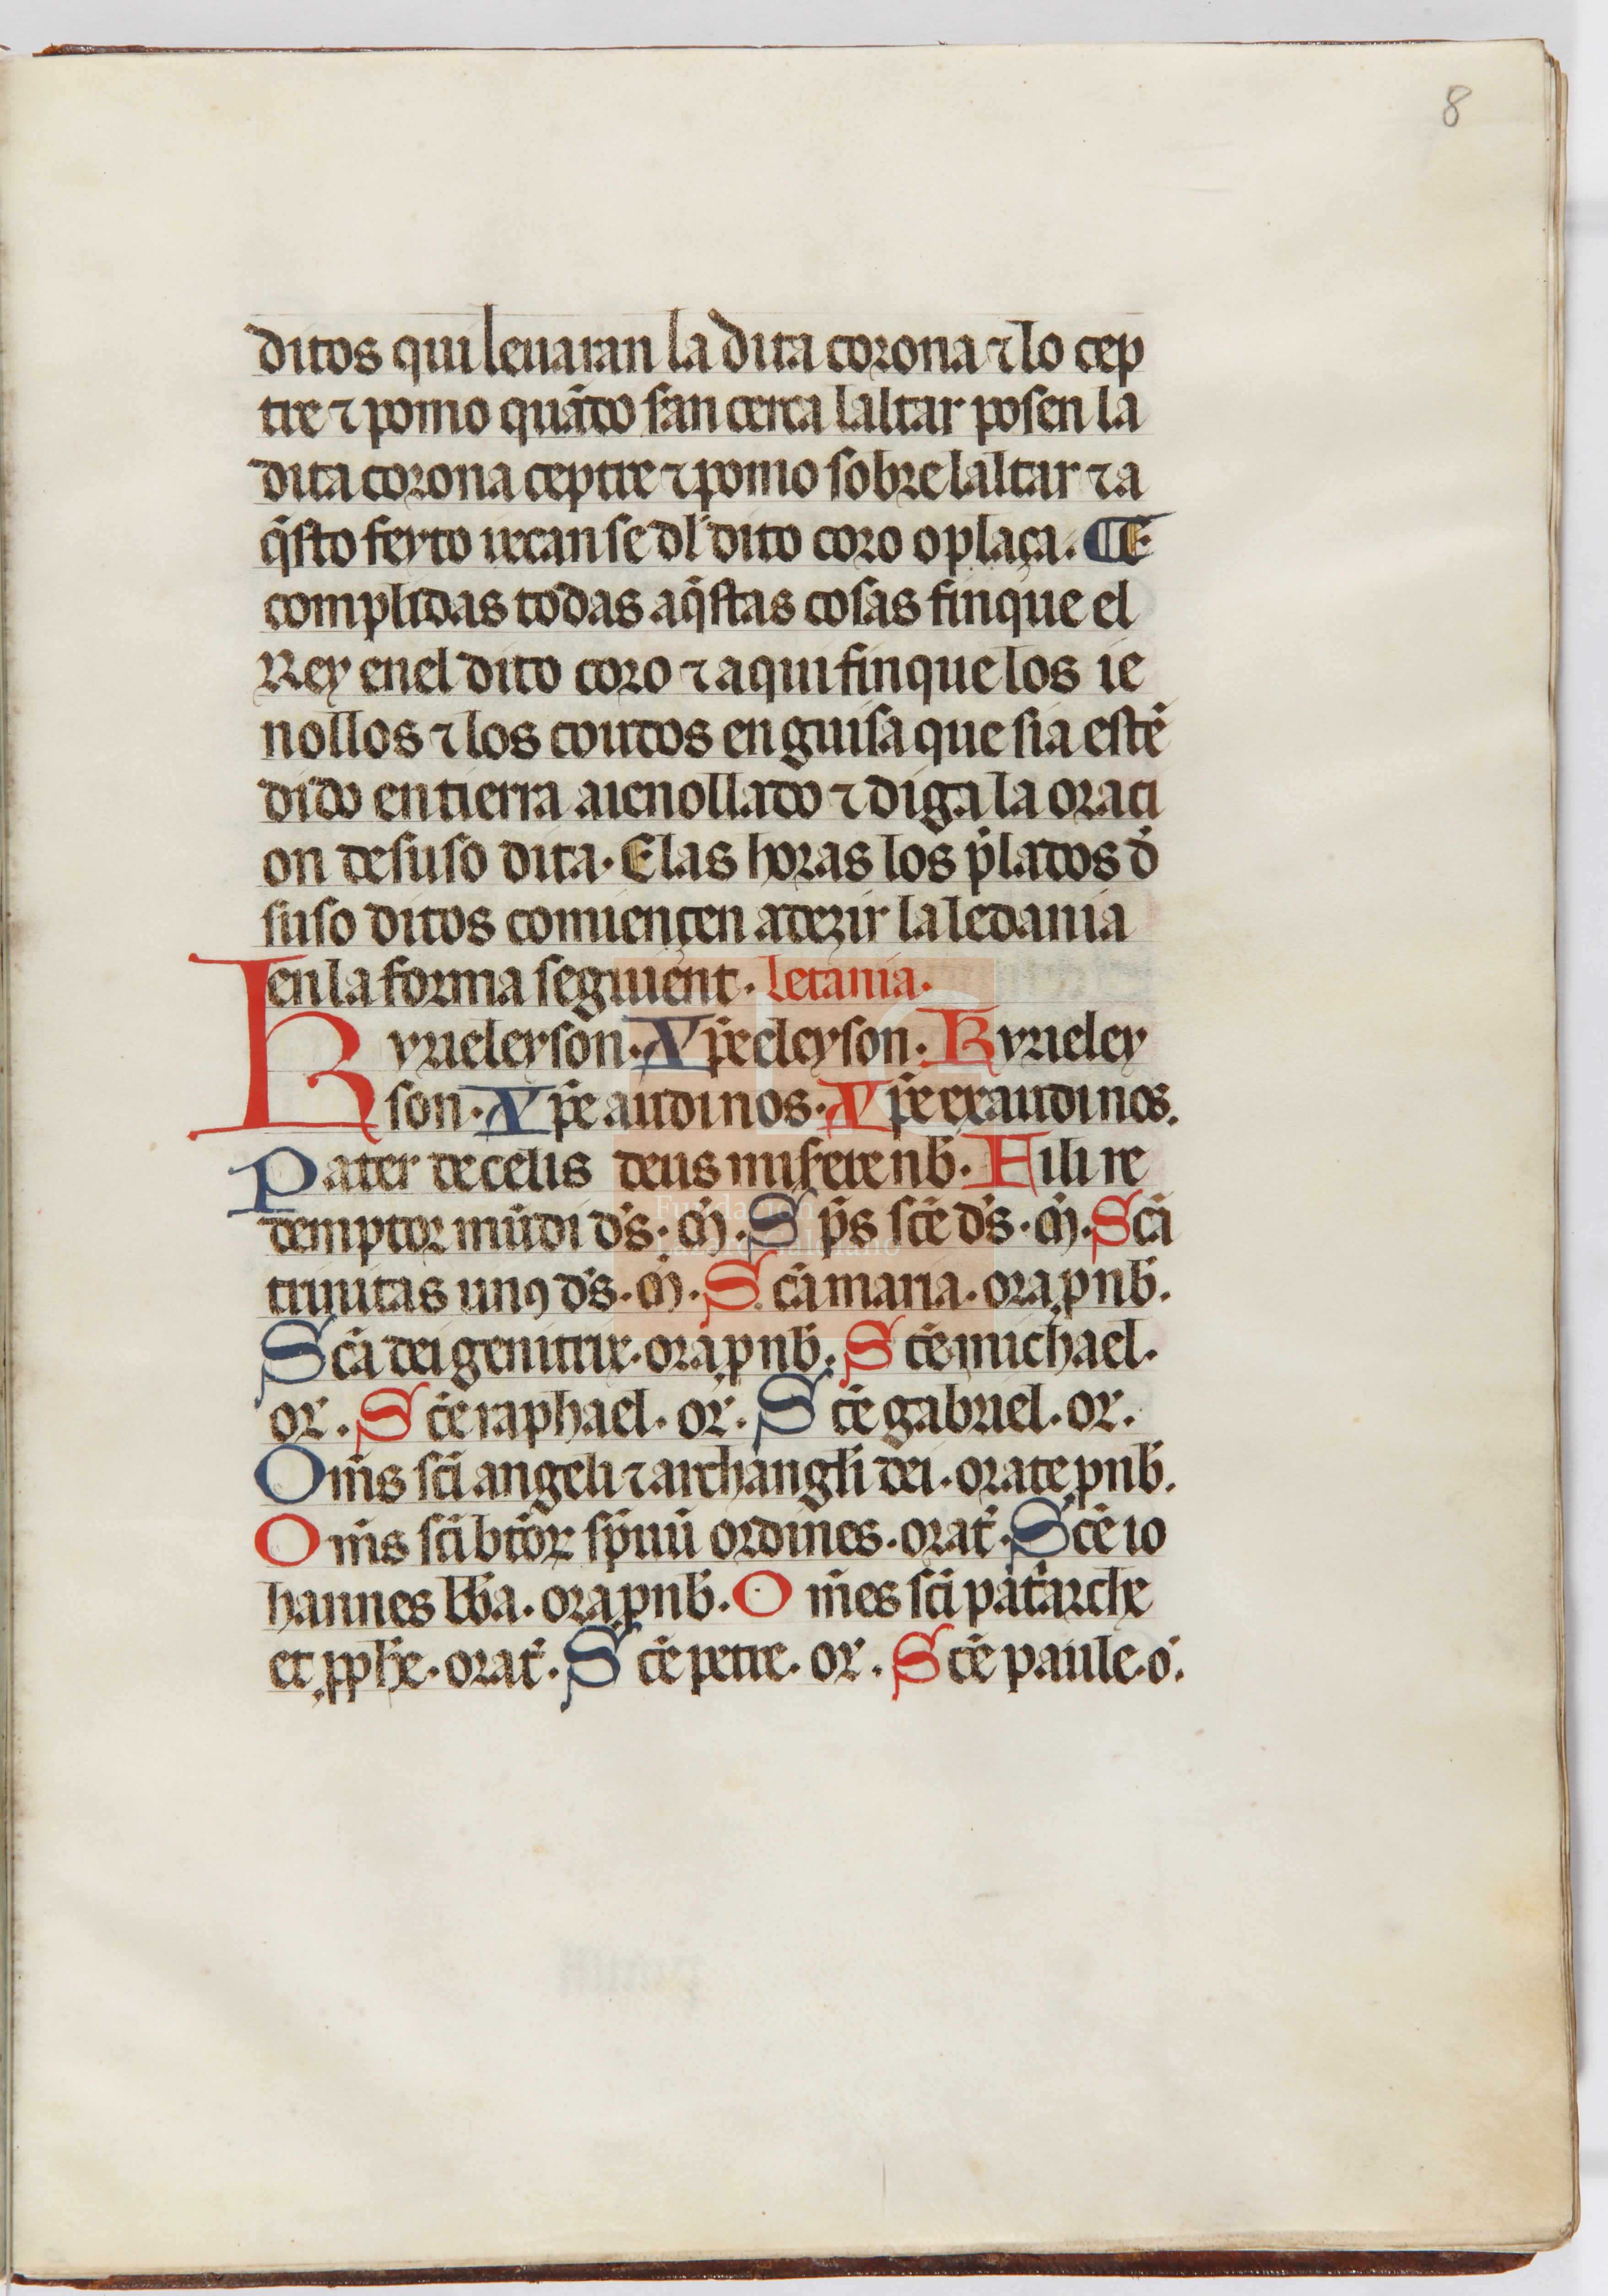 8
ditos qui leuaran la dita corona ⁊ lo cep
tre ⁊ pomo quãdo sían cerca laltar posen la
dita corona ceptre ⁊ pomo sobre laltar ⁊ a
q̃sto feyto vecan se dl dito coro o plaça. ¶ E
complidas todas aq̃stas cosas finque el
Rey en el dito coro ⁊ aqui finque los ie
nollos ⁊ los coudos en guisa que sia estẽ
dido en tierra aienollado ⁊ diga la oraci
on desuso dita. E las horas los p̃lados d̃
suso ditos comiençen a dezir la ledania
en la forma seguient. Letania.
Kyrieleyson. Xp̃eeleyson. Kyrieley
son. Xp̃e audi nos. Xp̃e exaudi nos.
Pater de celis deus miserere nb̃. Fili re
demptor mũdi d̃s. m̃. S p̃s sc̃e d̃s. m̃. Sc̃a
trinitas unꝰ d̃s. m̃. Sc̃a maria. ora p nb̃.
Sc̃a dei genitrix. ora p nb̃. Sc̃e michael.
or̃. Sc̃e raphael. or̃. Sc̃e gabriel. or̃.
Om̃s sc̃i angeli ⁊ archangl̃i dei. orate p nb̃.
Om̃s sc̃i bt̃oꝝ sp̃uũ ordines. orat̃. Sc̃e io
hannes bb̃a. ora p nb̃. Om̃es sc̃i pat̃arche
et ꝓph̃e. orat̃. Sc̃e petre. or̃. Sc̃e paule. o.
Fundación
Lázaro Galdiano